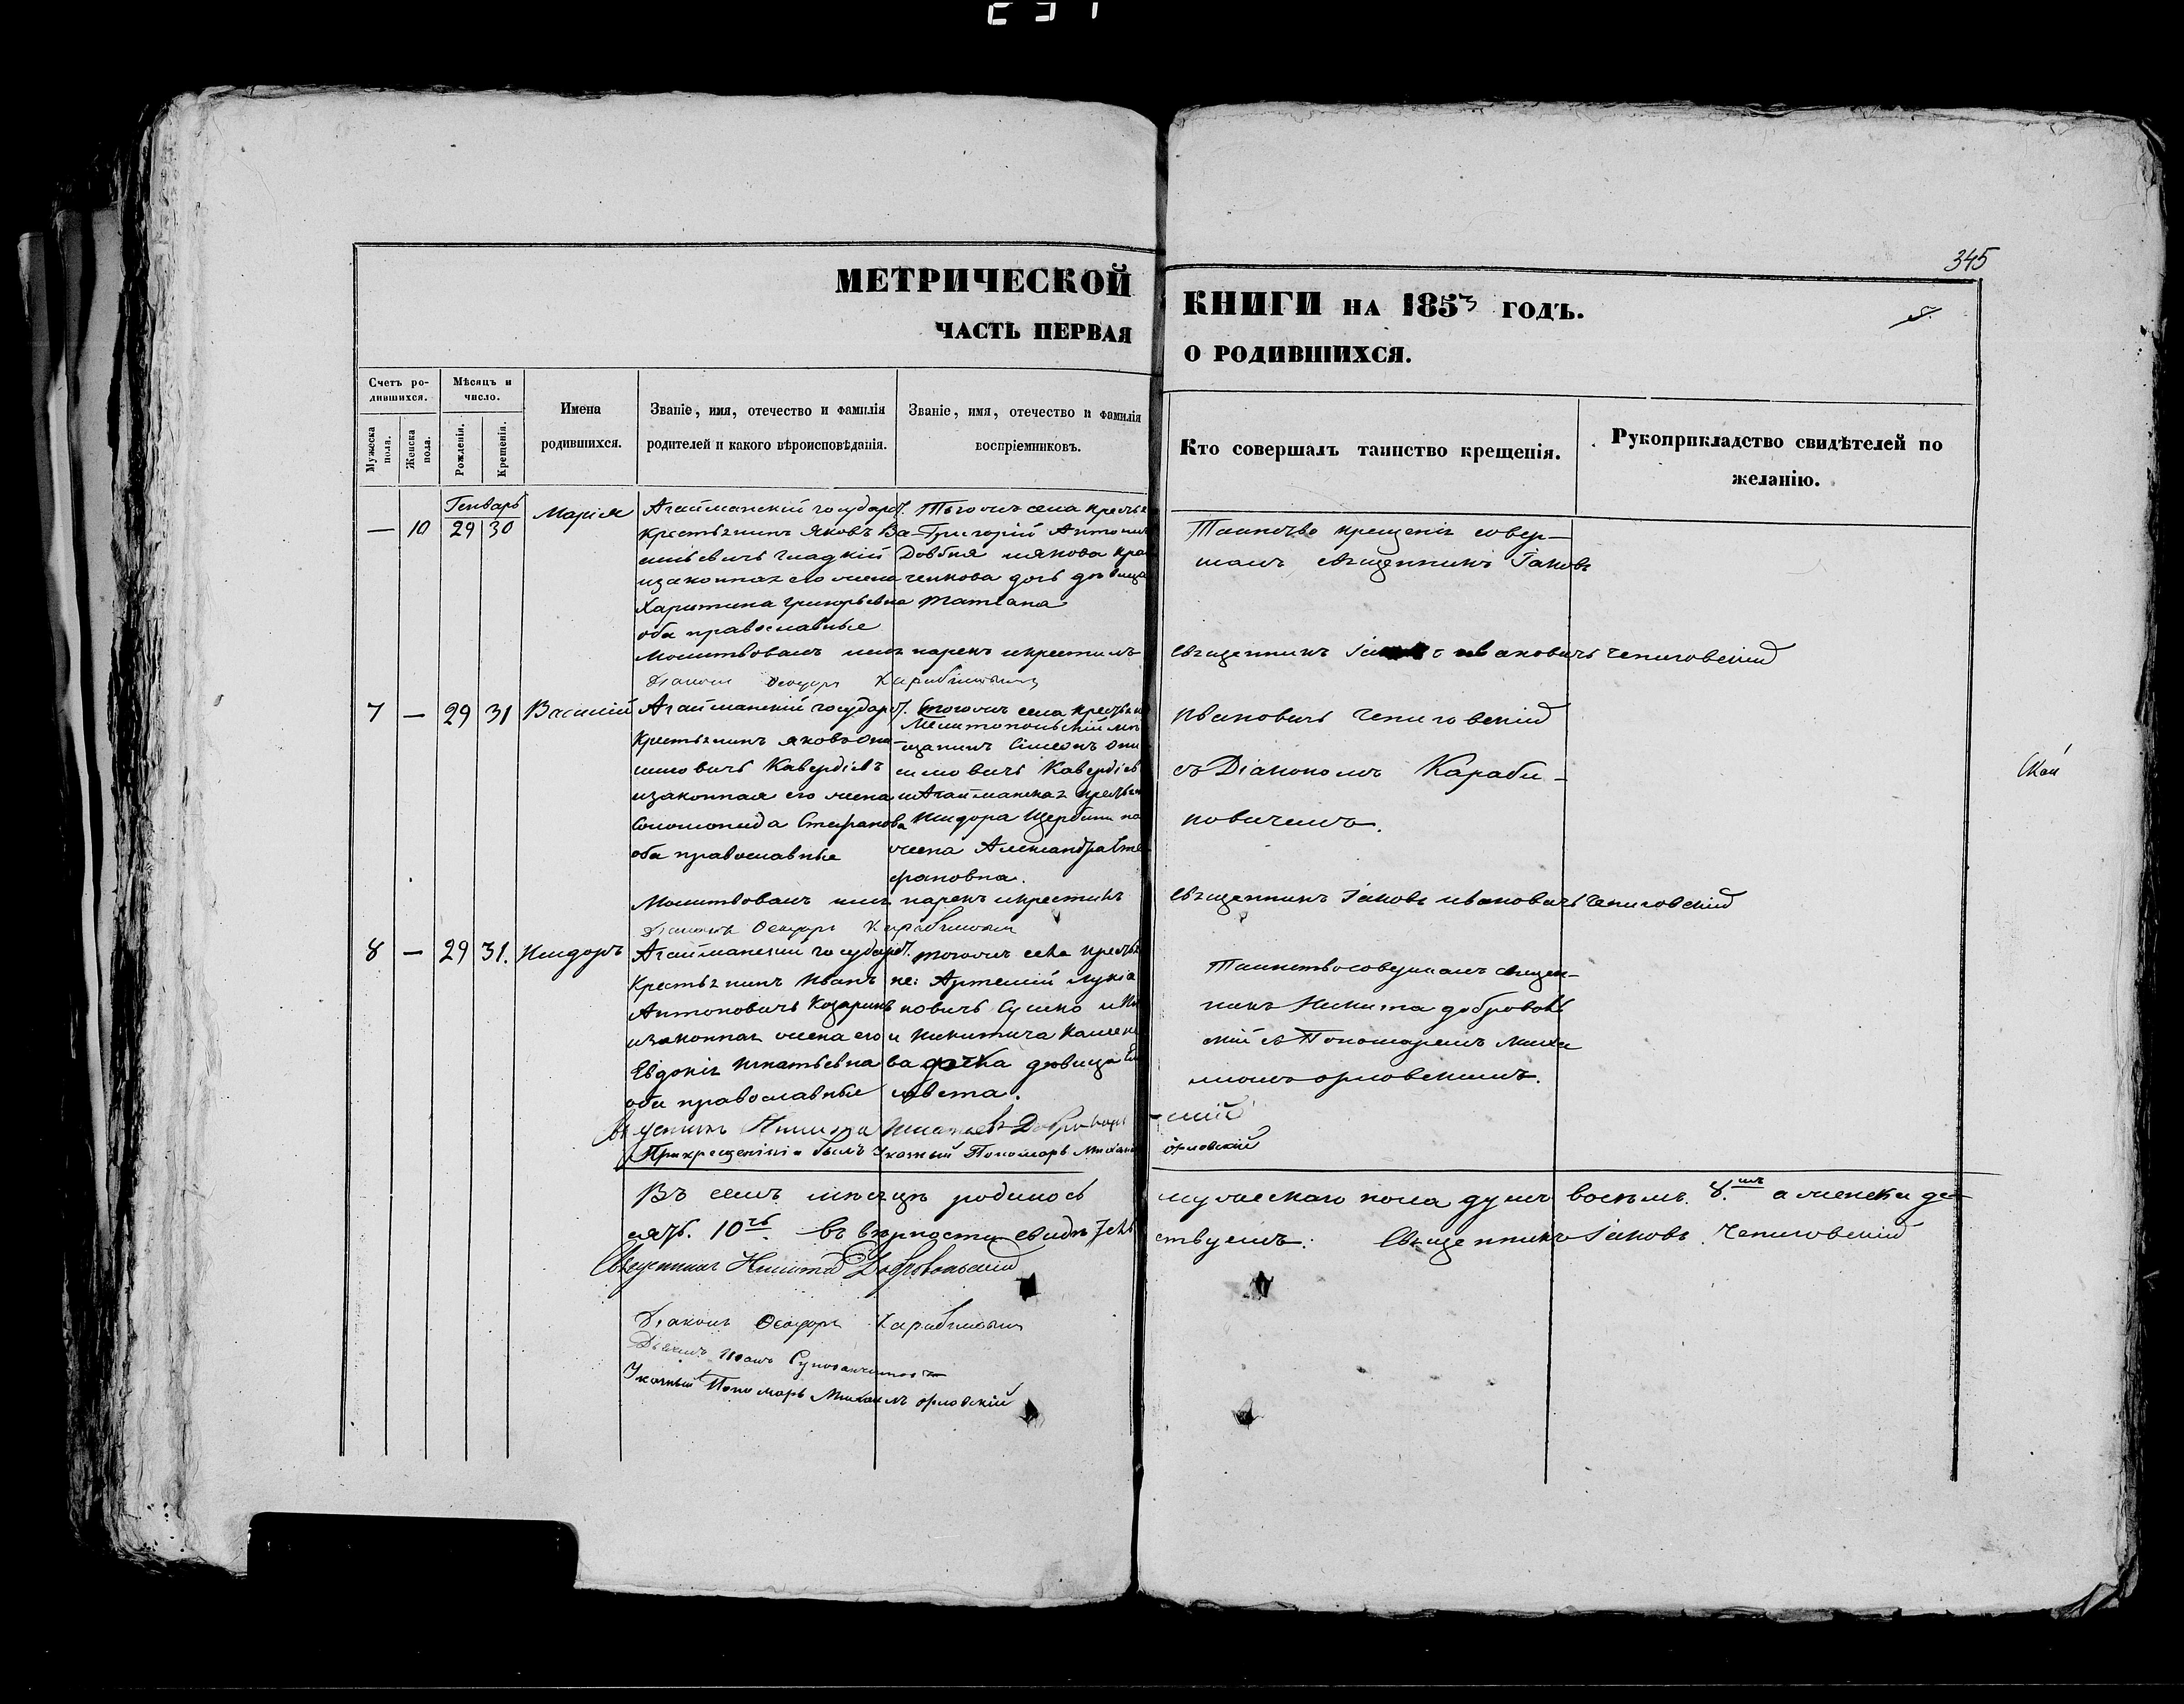 345
МЕТРИЧЕСКОЙ КНИГИ НА 1853 ГОДЪ.
ЧАСТЬ ПЕРВАЯ О РОДИВШИХСЯ.
Счетъ ро-
дившихся.
Мужеска пола.
Женска пола.
Мѣсяцъ и
число.
Рожденія.
Крещенія.
Имена
родившихся.
Званіе, имя, отечество и фамилія
родителей и какого вѣроисповѣданія.
Званіе, имя, отечество и фамилія
воспріемниковъ.
Кто совершалъ таинство крещенія.
Рукоприкладство свидѣтелей по
желанію.
Генварь
— 10 29 30 Марія
Агайманскій государст.
крестьянинъ Яковъ Ва-
сильевичъ Гладкій
изаконная его жена
Харитина Григорьевна
оба православные
Тогожъ села крестья
Григорій Антонов
Довбня
дочь дѣвица
Татіана
Таинство крещенія совер-
шалъ Священникъ Іаковъ
Молитвовалъ имя нарекъ икрестилъ Священникъ Ивановичъ Чепиговскій
Діаконъ Ѳеодоръ Карабиновичъ
7 — 29 31 Василій
Агайманскій государст.
Крестьянинъ Яковъ Они-
симовичъ Кавердіевъ
изаконная его жена
Соломонида Стефанова
оба православные
тогожъ села крестьян
Мелитопольскій мѣ
щанинъ Симеонъ Они
симовичъ Кавердіев
и Агайманская крестьян
Исидора Щербины
жена Александра Сте
фановна.
Ивановичъ Чепиговскій
съ Діакономъ Караби-
новичемъ.
Молитвовалъ имя нарекъ икрестилъ Священникъ Іаковъ Ивановичъ Чепиговскій
Діаконъ Ѳеодоръ Карабиновичъ
8 — 29 31. Исидоръ
Агайманскій государст.
Крестьянинъ Иванъ
Антоновичъ Козаринъ
изаконная жена его
Евдокія Игнатьевна
оба православные
тогожъ села крестья
не: Артемій Лукія
новичъ Сушко и
Никитича
дочка дѣвица Ели
савета.
Таинство совершалъ Священ-
никъ Никита Доброволь
скій съ Пономаремъ Михаи
ломъ Орловскимъ.
Священникъ Никита Добровольскій
При крещеніи былъ Указный Пономарь Михаилъ Орловскій
Въ семъ мѣсяцѣ родилось мужескаго пола душъ восьмъ. 8. а женска де-
сять. 10ть. въ вѣрности свидѣтель ствуемъ: Священникъ Іаковъ Чепиговскій
Священникъ Никита Добровольскій
Діаконъ Ѳеодоръ Карабиновичъ
Указный Пономарь Михаилъ Орловскій